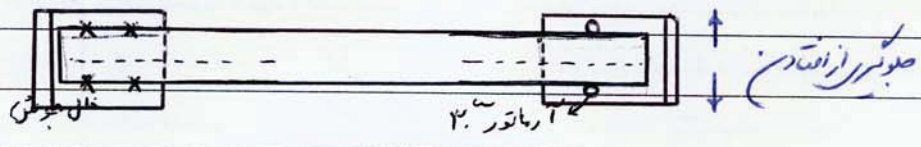 جلوگیری از افتادن
خال جوش
آرماتور ۳۰